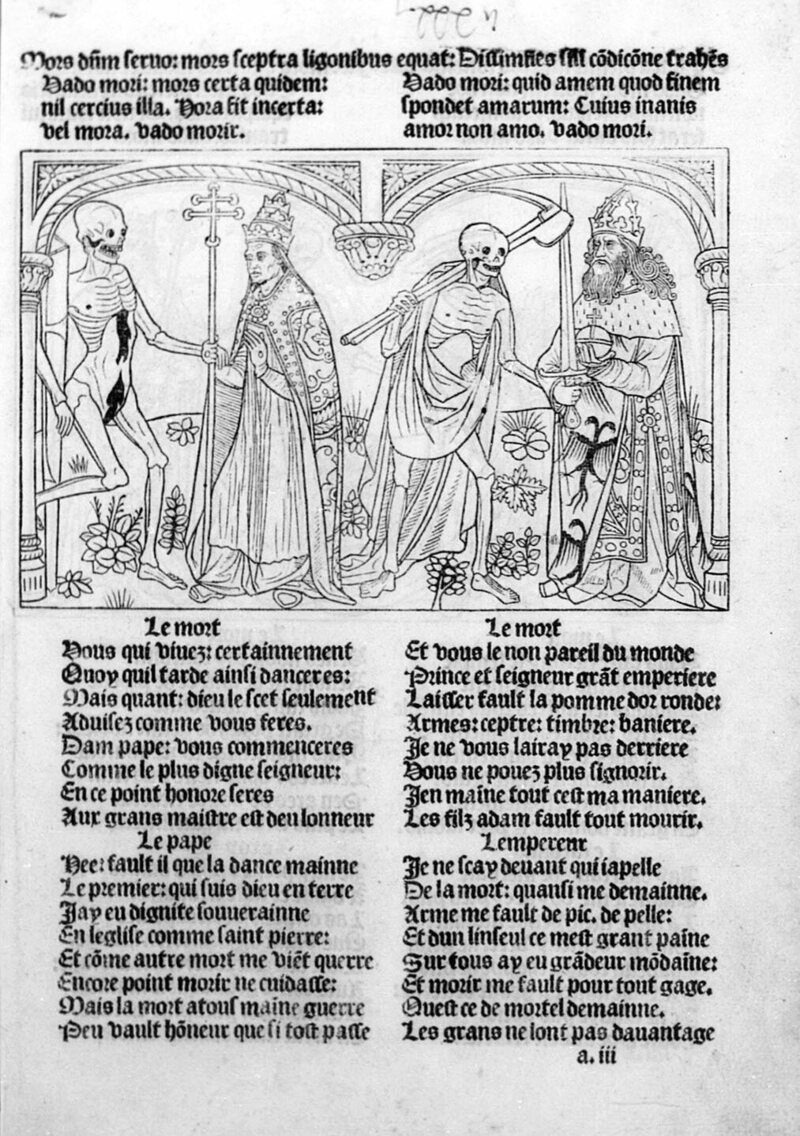 Mors dñm seruo: mors sceptra ligonibus equat: Dissimiles sili cõdicõne trahẽs
Vado mori: mors certa quidem:
nil cercius illa. Hora fit incerta:
vel mora. vado morir.
Vado mori: quid amem quod finem
spondet amarum: Cuius inanis
amor non amo. vado mori.
Le mort
Vous qui viuez: certainnement
Quoy quil tarde ainsi danceres:
Mais quant: dieu le scet seulement
Aduisez comme vous feres.
Dam pape: vous commenceres
Comme le plus digne seigneur:
En ce point honore seres
Aux grans maistre est deu lonneur
Le pape
Hee: fault il que la dance mainne
Le premier: qui suis dieu en terre
Jay eu dignite souuerainne
En leglise comme saint pierre:
Et cõme autre mort me viẽt querre
Encore point morir ne cuidasse:
Mais la mort atous maine guerre
Peu vault hõneur que si tost passe
Le mort
Et vous le non pareil du monde
Prince et seigneur grãt emperiere
Laisser fault la pomme dor ronde:
Armes: ceptre: timbre: baniere.
Je ne vous lairay pas derriere
Vous ne pouez plus signorir.
Jen maine tout cest ma maniere.
Les filz adam fault tout mourir.
Lempereur
Je ne scay deuant qui iapelle
De la mort: quansi me demainne.
Arme me fault de pic. de pelle:
Et dun linseul ce mest grant paine
Sur tous ay eu grãdeur mõdaine:
Et morir me fault pour tout gage.
Quest ce de mortel demainne.
Les grans ne lont pas dauantage
a. iii